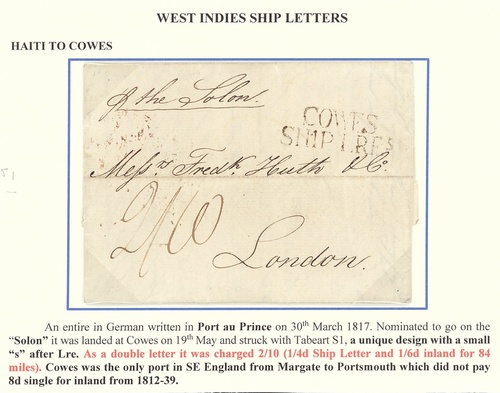 WEST INDIES SHIP LETTERS
HAITI TO COWES
p the Solon.
COWES
SHIP LRE s
Messrs Fredk. Huth & Co.
2/10
London.
An entire in German written in Port au Prince on 30th March 1817. Nominated to go on the
“Solon” it was landed at Cowes on 19th May and struck with Tabeart S1, a unique design with a small
“s” after Lre. As a double letter it was charged 2/10 (1/4d Ship Letter and 1/6d inland for 84
miles). Cowes was the only port in SE England from Margate to Portsmouth which did not pay
8d single for inland from 1812-39.